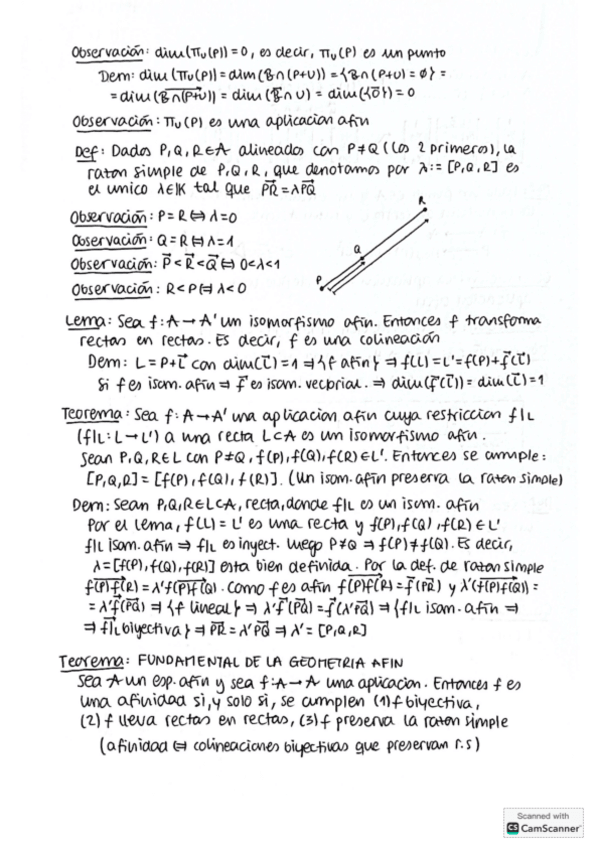 Observación: dim(π_U(P)) = 0, es decir, π_U(P) es un punto
Dem: dim(π_U(P)) = dim(B∩(P+U)) = {B∩(P+U) = ∅} =
= dim(B∩(P+U)) = dim(B∩U) = dim({0}) = 0
Observación: π_U(P) es una aplicacion afin
Def: Dados P,Q,R∈A alineados con P≠Q (los 2 primeros), la
razon simple de P,Q,R, que denotamos por λ := [P,Q,R] es
el unico λ∈K tal que PR⃗ = λPQ⃗
Observación: P=R ⇔ λ=0
Observación: Q=R ⇔ λ=1
Observación: P⃗ < R⃗ < Q⃗ ⇔ 0<λ<1
Observación: R<P ⇔ λ<0
R
Q
P
Lema: Sea f: A→A' un isomorfismo afin. Entonces f transforma
rectas en rectas. Es decir, f es una colineación
Dem: L = P+L⃗ con dim(L⃗)=1 ⇒ {f afin} ⇒ f(L) = L' = f(P)+f⃗(L⃗)
Si f es isom. afin ⇒ f⃗ es isom. vectorial. ⇒ dim(f⃗(L⃗)) = dim(L⃗) = 1
Teorema: Sea f: A→A' una aplicacion afin cuya restriccion f|L
(f|L: L→L') a una recta L⊂A es un isomorfismo afin.
Sean P,Q,R∈L con P≠Q, f(P),f(Q),f(R)∈L'. Entonces se cumple:
[P,Q,R] = [f(P),f(Q),f(R)]. (Un isom. afin preserva la razon simple)
Dem: Sean P,Q,R∈L⊂A, recta, donde f|L es un isom. afin
Por el lema, f(L) = L' es una recta y f(P),f(Q),f(R) ∈ L'
f|L isom. afin ⇒ f|L es inyect. luego P≠Q ⇒ f(P)≠f(Q). Es decir,
λ=[f(P),f(Q),f(R)] esta bien definida. Por la def. de razon simple
f(P)f(R)⃗ = λ'f(P)f(Q)⃗. Como f es afin f(P)f(R)⃗ = f⃗(PR⃗) y λ'(f(P)f(Q)⃗) =
= λ'f⃗(PQ⃗) ⇒ {f lineal} ⇒ λ'f⃗(PQ⃗) = f⃗(λ'PQ⃗) ⇒ {f|L isom. afin ⇒
⇒ f⃗|L biyectiva} ⇒ PR⃗ = λ'PQ⃗ ⇒ λ' = [P,Q,R]
Teorema: FUNDAMENTAL DE LA GEOMETRIA AFIN
Sea A un esp. afin y sea f: A→A una aplicacion. Entonces f es
una afinidad si, y solo si, se cumplen (1) f biyectiva,
(2) f lleva rectas en rectas, (3) f preserva la razon simple
(afinidad ⇔ colineaciones biyectivas que preservan r.s)
Scanned with
CS CamScanner